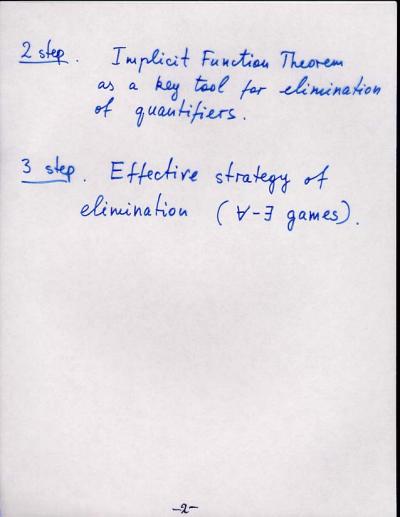 2 step. Implicit Function Theorem
as a key tool for elimination
of quantifiers.
3 step. Effective strategy of
elimination (∀-∃ games).
-2-